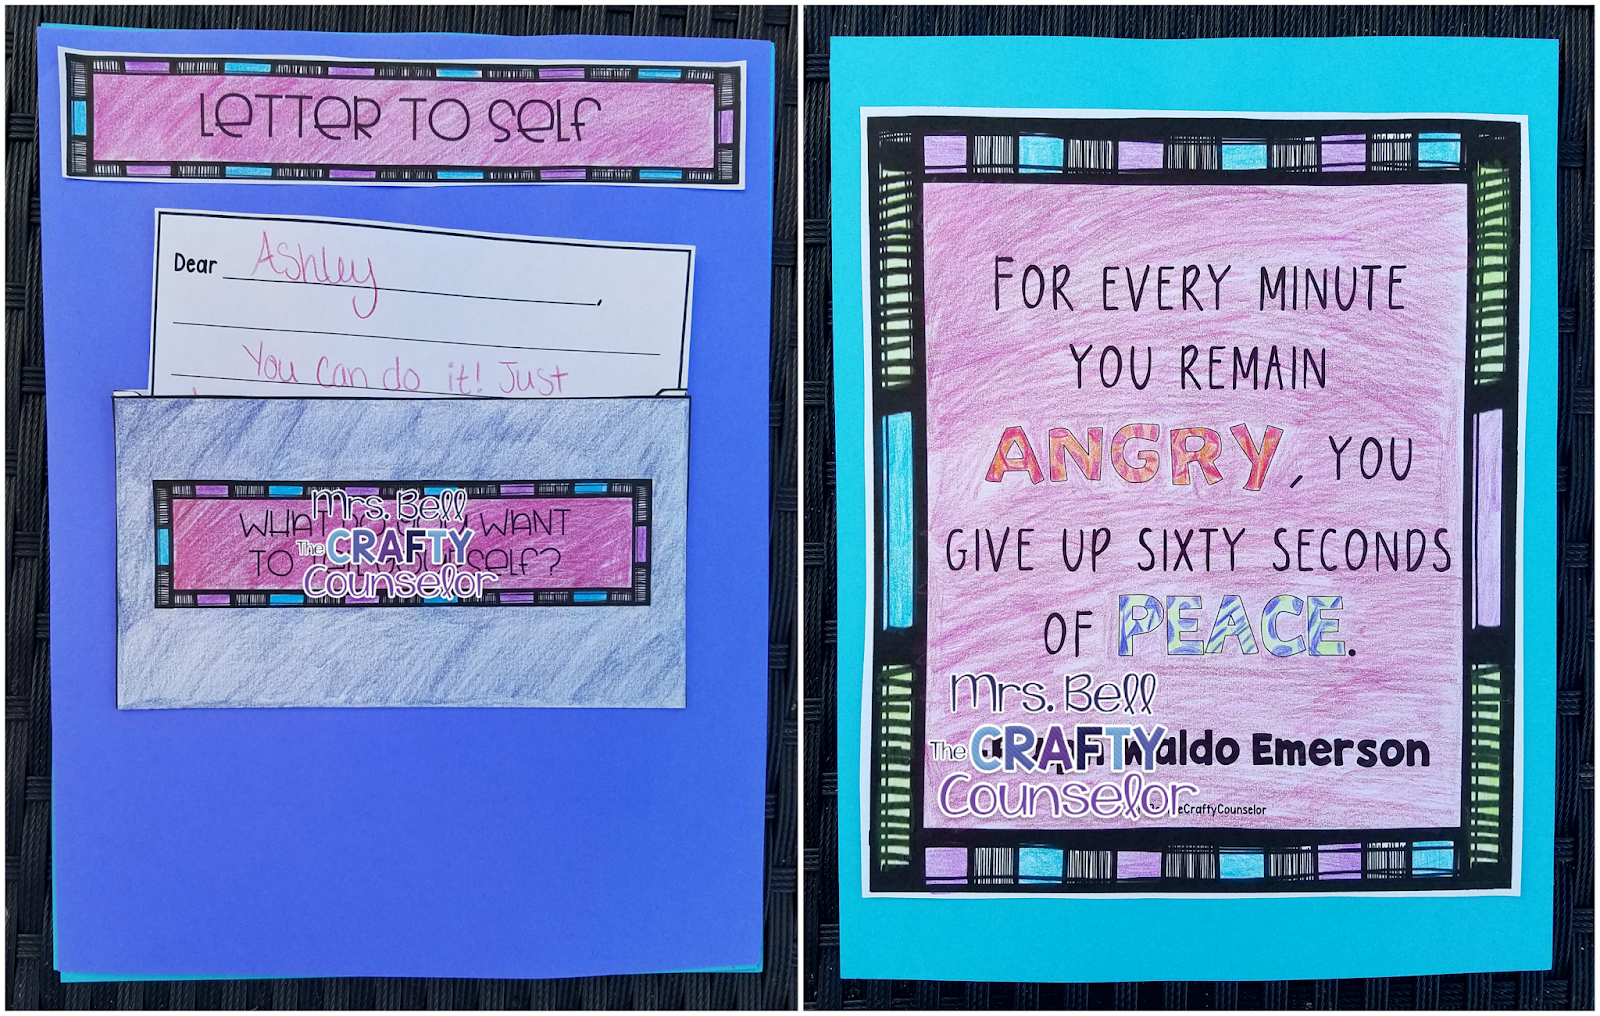 LETTER TO SELF
Dear Ashley,
You can do it! Just
WHAT DO YOU WANT
TO SELF?
Mrs. Bell
The CRAFTY
Counselor
FOR EVERY MINUTE
YOU REMAIN
ANGRY, YOU
GIVE UP SIXTY SECONDS
OF PEACE.
Waldo Emerson
Mrs. Bell
The CRAFTY
Counselor
eCraftyCounselor